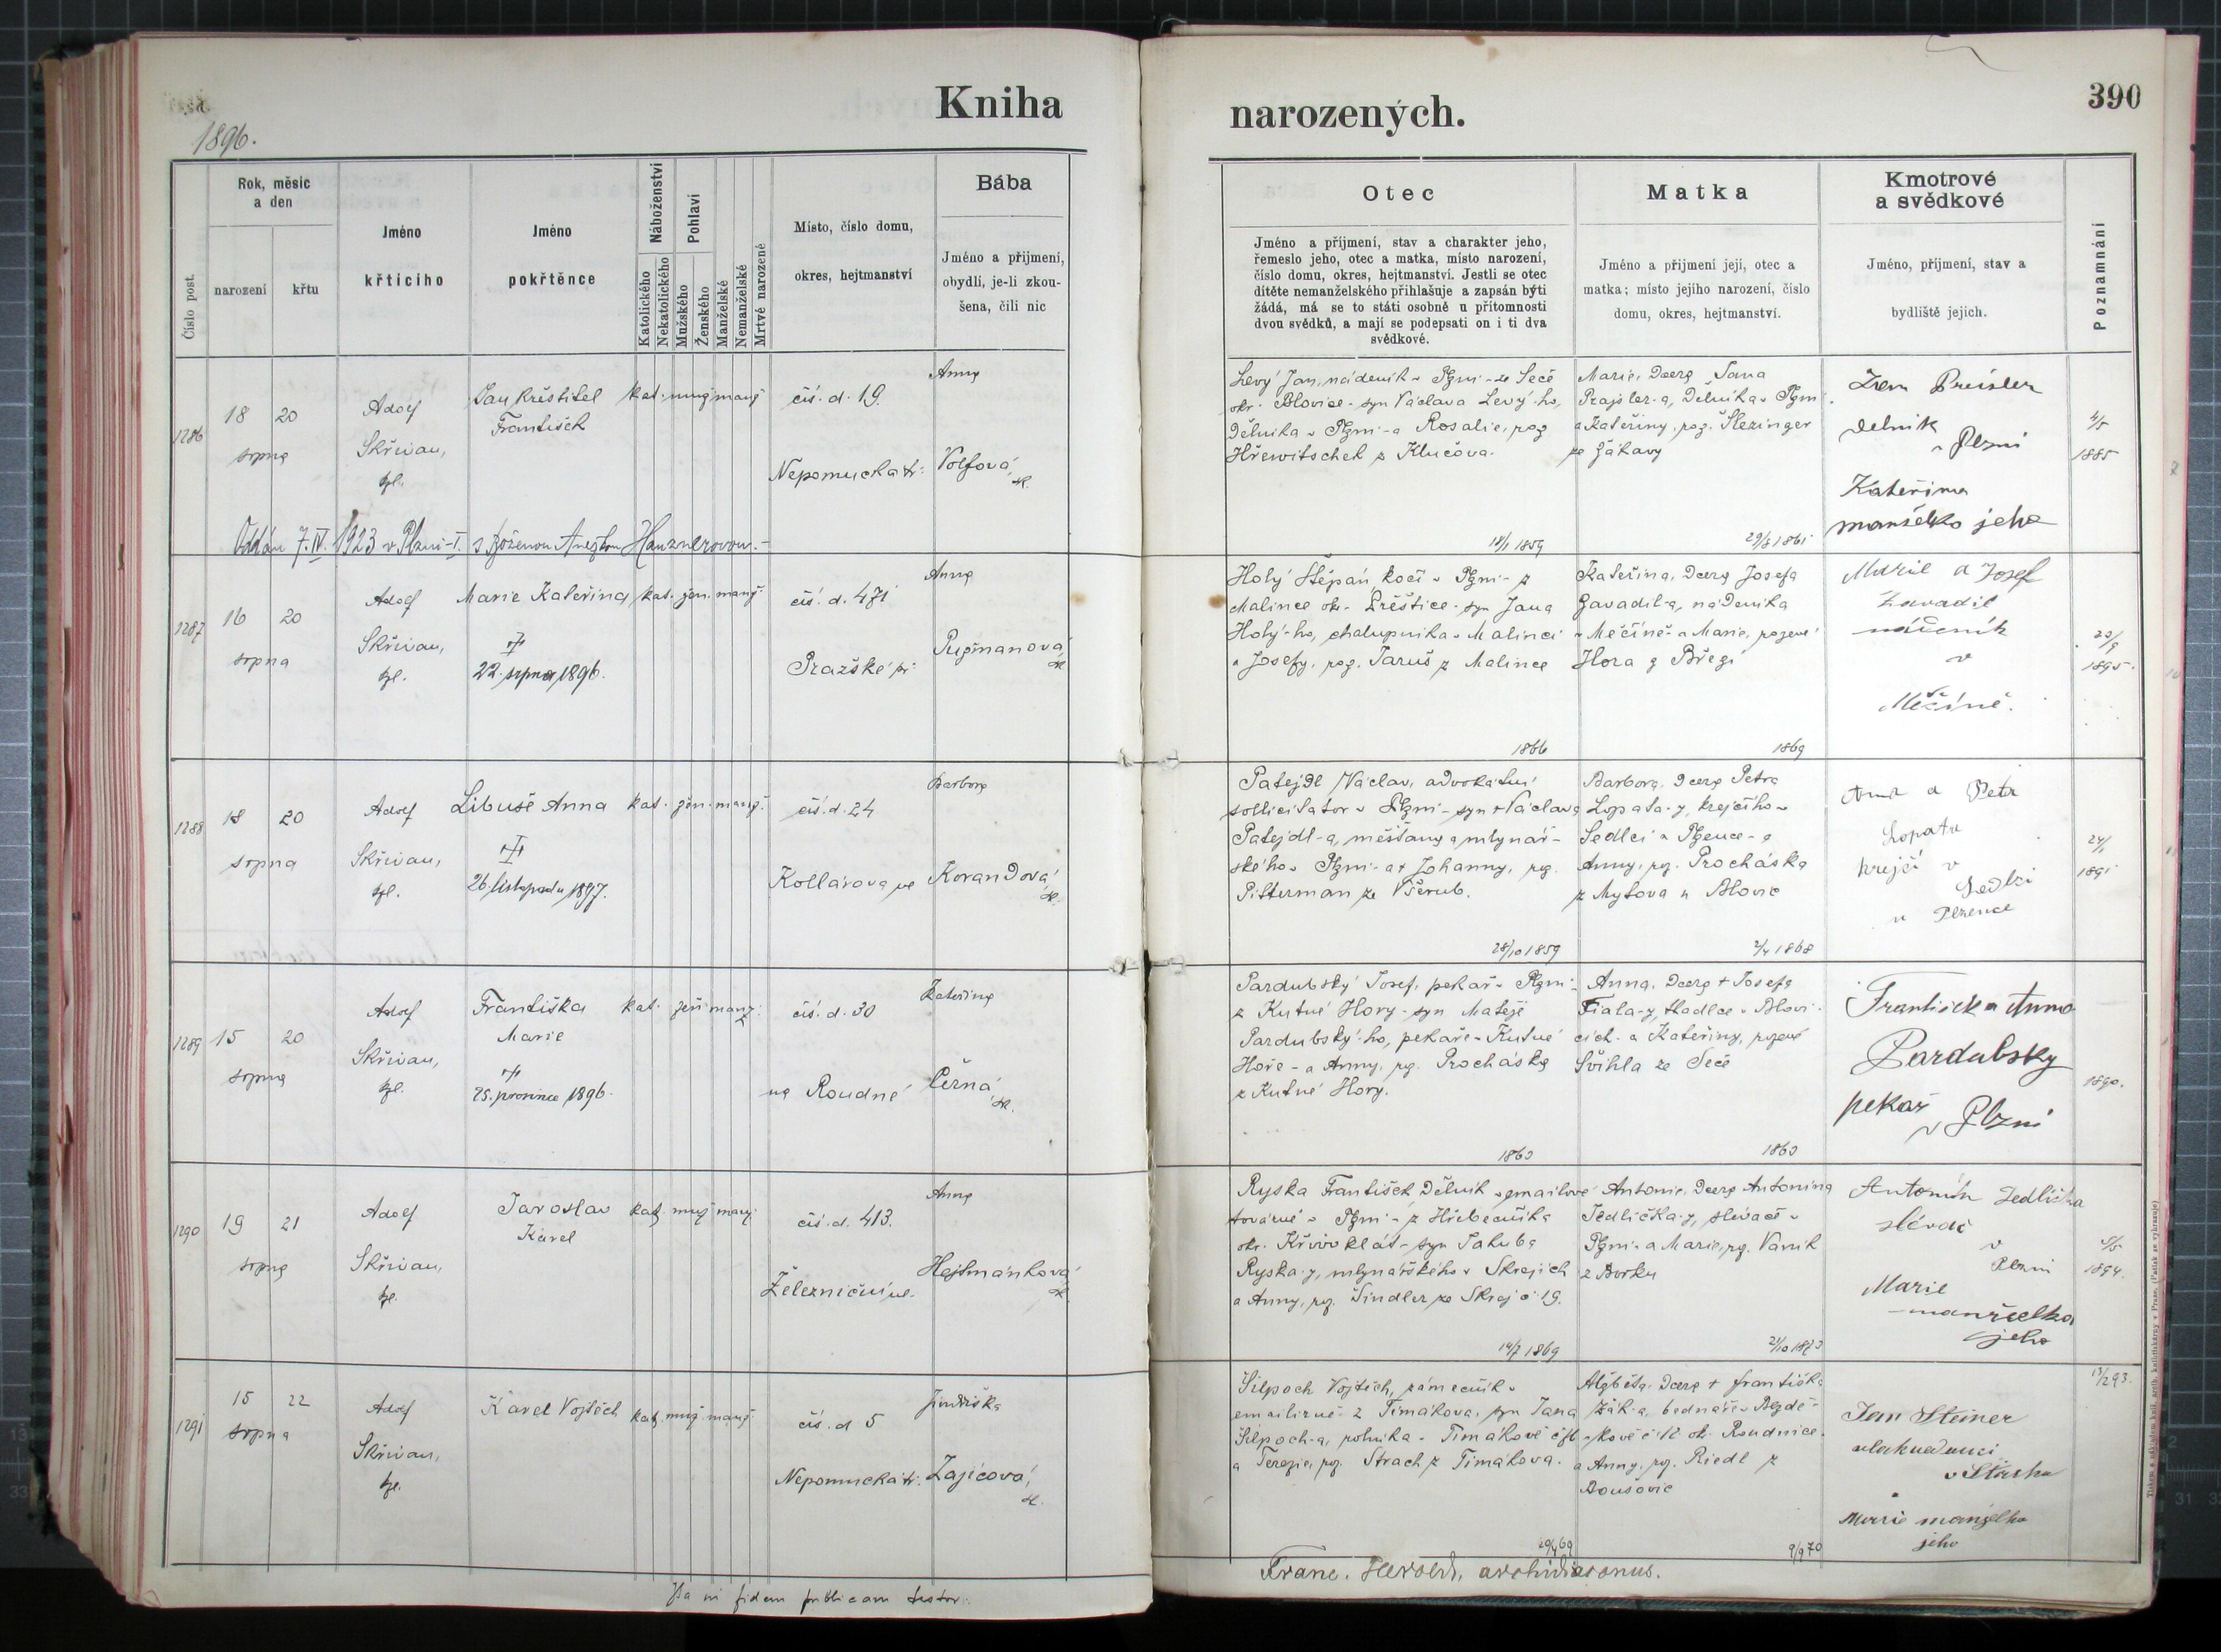 Kniha
narozených.
390
1896.
Číslo post.
Rok, měsíc
a den
narození
křtu
Jméno
křtícího
Jméno
pokřtěnce
Náboženství
Katolického
Nekatolického
Pohlaví
Mužského
Ženského
Manželské
Nemanželské
Mrtvě narozené
Místo, číslo domu,
okres, hejtmanství
Bába
Jméno a přijmení,
obydlí, je-li zkou-
šena, čili nic
Otec
Jméno a příjmení, stav a charakter jeho,
řemeslo jeho, otec a matka, místo narození,
číslo domu, okres, hejtmanství. Jestli se otec
dítěte nemanželského přihlašuje a zapsán býti
žádá, má se to státi osobně u přítomnosti
dvou svědků, a mají se podepsati on i ti dva
svědkové.
Matka
Jméno a přijmení její, otec a
matka; místo jejího narození, číslo
domu, okres, hejtmanství.
Kmotrové
a svědkové
Jméno, příjmení, stav a
bydliště jejich.
Poznamnání
1286
18 20
srpna
Adolf
Skřivan,
kpl.
Jan Křestitel
František
kat. muž. manž.
čís. d. 19.
Nepomucká tř.
Anna
Volfová,
zk.
Oddán 7.IV. 1923 v Plzni-I. s Boženou Anežkou Hauznerovou.-
Levý Jan, nádeník v Plzni - ze Seče
okr. Blovice - syn Václava Levý-ho,
dělníka v Plzni - a Rosalie, roz.
Hřewitschek z Klučova.
18/1 1859
Marie, dcera Jana
Prajsler-a, dělníka v Plzni
a Kateřiny, roz. Šlezinger
ze Žákavy
29/8 1861
Jan Preisler
dělník
v Plzni
Kateřina
manželka jeho
4/5
1885
1287
16 20
srpna
Adolf
Skřivan,
kpl.
Marie Kateřina
†
22. srpna 1896.
kat. žen. manž.
čís. d. 471
Pražské př.
Anna
Pužmanová,
zk.
Holý Štěpán, kočí v Plzni - z
Malince okr. Přeštice - syn Jana
Holý-ho, chalupníka v Malinci
a Josefy, roz. Taruš z Malince
1866
Kateřina, dcera Josefa
Zavadil-a, nádeníka
v Měčíně - a Marie, rozené
Hora z Březí
1869
Marie a Josef
Zavadil
nádeník
v
Měčíně.
1895.
1288
18 20
srpna
Adolf
Skřivan,
kpl.
Libuše Anna
†
26. listopadu 1897.
kat. žen. manž.
čís. d. 24
Kollárova ul.
Barbora
Korandová,
zk.
Patejdl Václav, advokátní
sollicitator v Plzni - syn † Václava
Patejdl-a, měšťana a mlynář-
ského v Plzni - a † Johanny, roz.
Pitterman ze Všerub.
28/10 1859
Barbora, dcera Petra
Lopata-y, krejčího v
Sedlci u Plzence - a
Anny, roz. Procháska
z Mytova u Blovic
2/4 1868
Anna a Petr
Lopata
krejčí v
Sedlci
u Plzence
24/1
1891
1289
15 20
srpna
Adolf
Skřivan,
kpl.
Františka
Marie
†
25. prosince 1896.
kat. žen. manž.
čís. d. 30
na Roudné
Kateřina
Černá,
zk.
Pardubský Josef, pekař v Plzni -
z Kutné Hory - syn Matěje
Pardubský-ho, pekaře v Kutné
Hoře - a Anny, roz. Procháska
z Kutné Hory.
1863
Anna, dcera † Josefa
Fiala-y, tkadlce v Blovi-
cích - a Kateřiny, rozené
Švihla ze Seče
1863
František a Anna
Pardubsky
pekař
v Plzni
1890.
1290
19 21
srpna
Adolf
Skřivan,
kpl.
Jaroslav
Karel
kat. muž. manž.
čís. d. 413.
Železniční ul.
Anna
Hejtmánková,
zk.
Ryska František, dělník v emailové
továrně v Plzni - z Hřebečníka
okr. Křivoklát - syn Jakuba
Ryska-y, mlynářského v Skrejích
a Anny, roz. Šindler ze Skrej č 19.
14/7 1869
Antonie, dcera Antonína
Jedlička-y, slévače v
Plzni - a Marie, roz. Vaník
z Borku
21/10 1873
Antonín Jedlička
slévač
v
Plzni
Marie
manželka
jeho
5/5
1894.
1291
15 22
srpna
Adolf
Skřivan,
kpl.
Karel Vojtěch
kat. muž. manž.
čís. d 5
Nepomucká tř.
Jindřiška
Zajícová,
zk.
Vojtěch, zámečník v
z Timákova, syn Jana
a Terezie, roz. Strach z Timákova.
29/4 69
Alžběta, dcera † Františka
Žák-a, bednáře v Bezdě-
kově č 12 ok. Roudnice.
a Anny, roz. Riedl z
Boušovic
9/9 70
Jan Steiner
vlakvedoucí
Marie manželka
jeho
13/2 93.
Ita in fidem publicam testor:
Franc. Herold, archidiaconus.